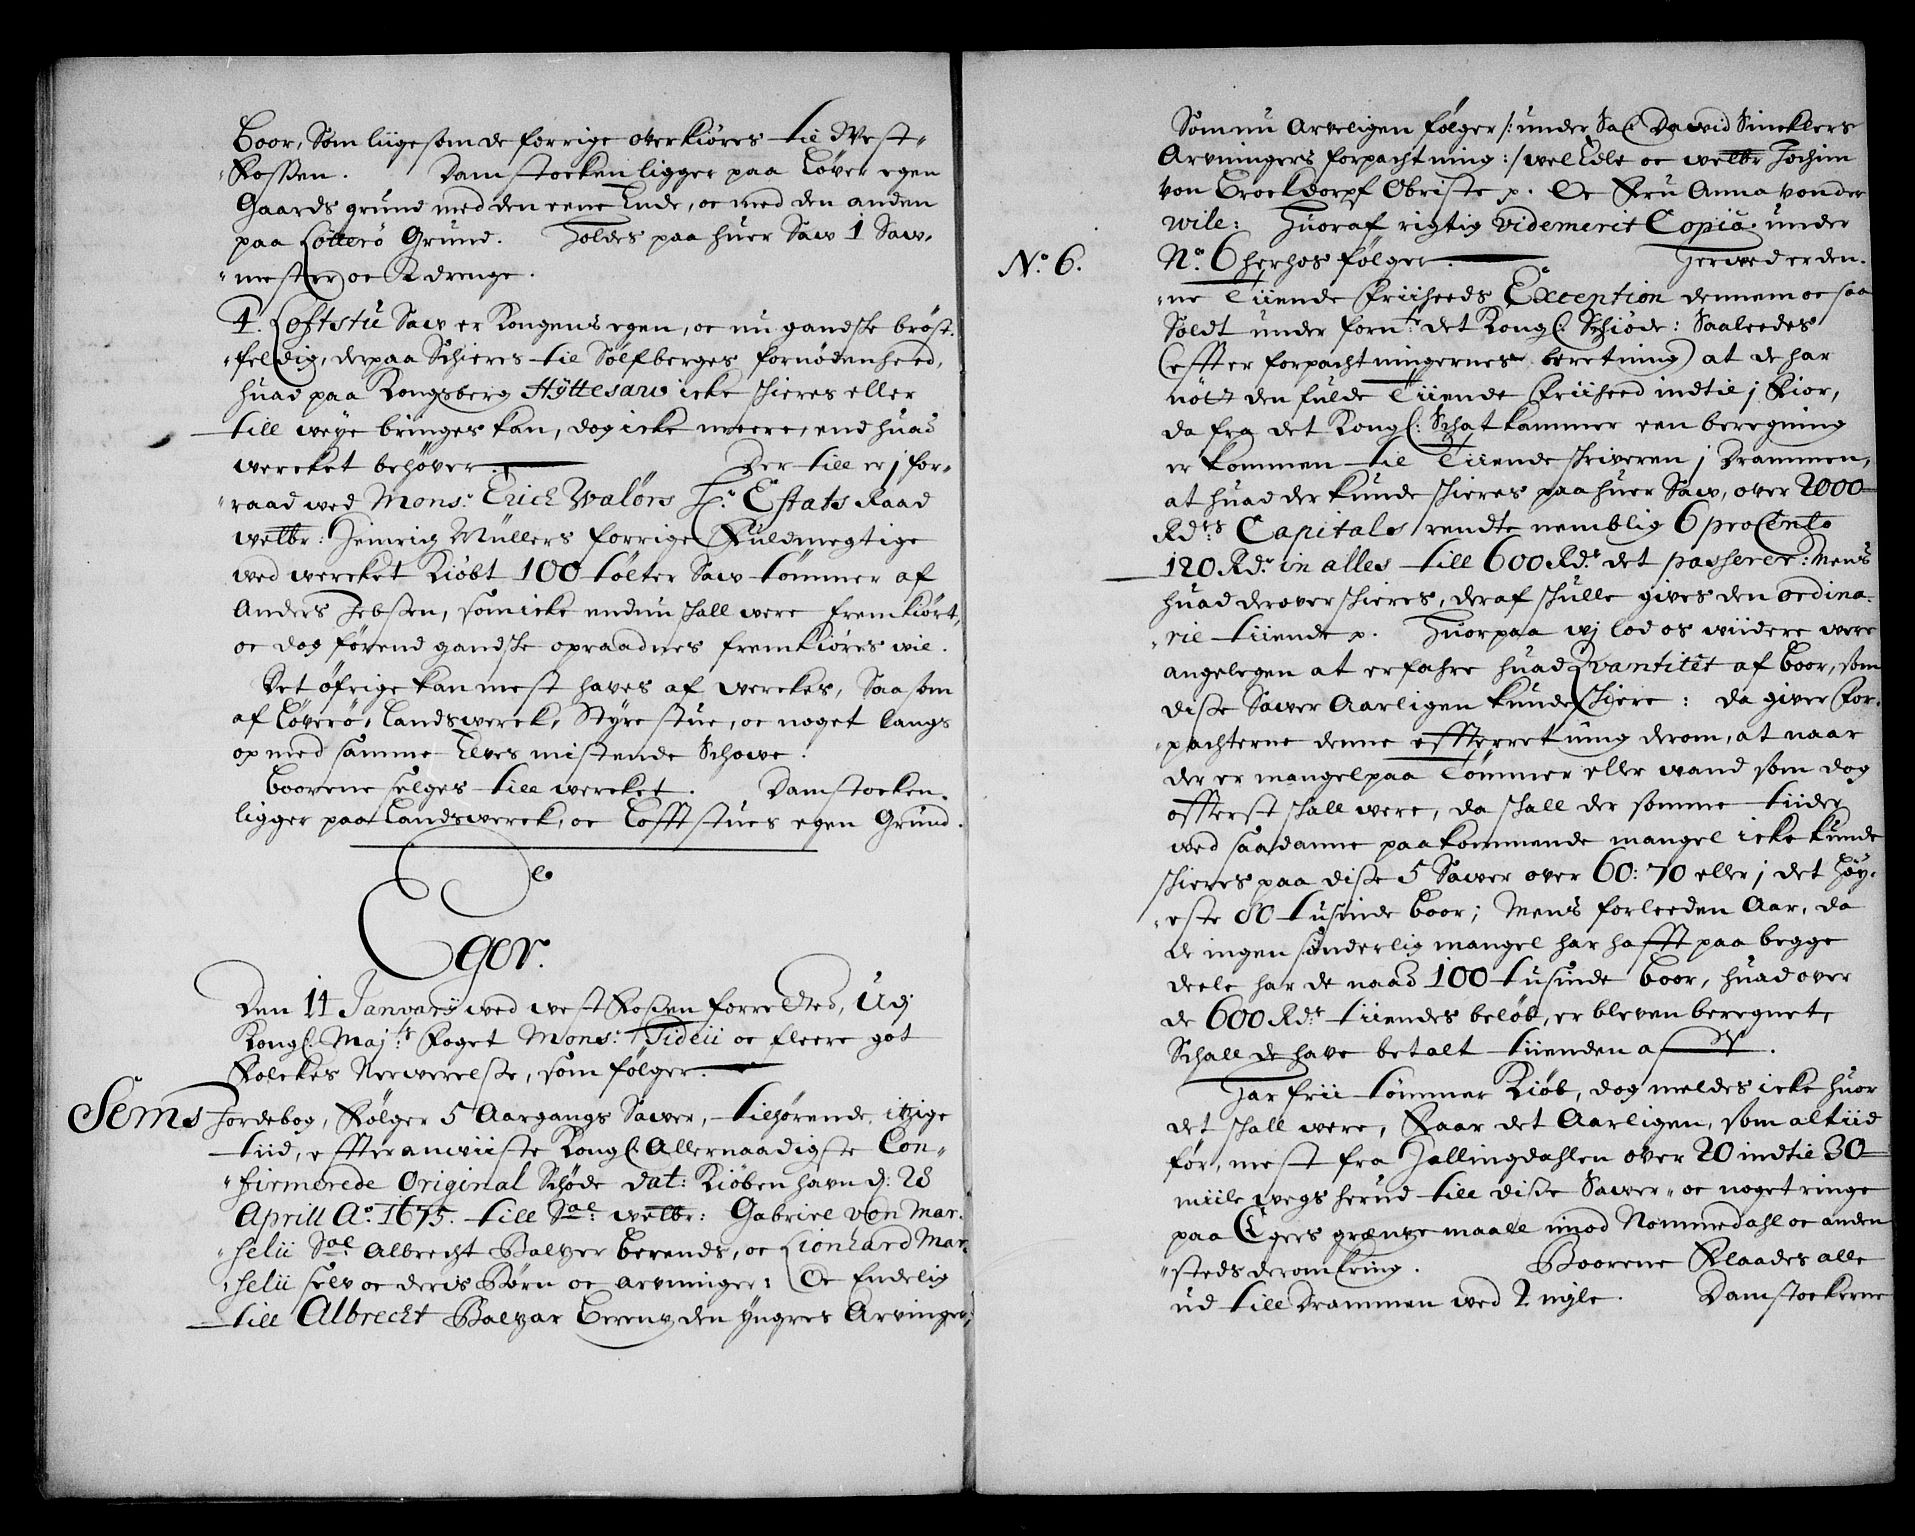 Boor, Som liige som de forrige overkiøres til West-
Fossen. Damstocken ligger paa Løver egen
Gaards grund med den eene Ende, oc med den anden
paa Lofterø Grund. Holdes paa huer Saw 1 Saw-
mester oc 2 drenge.
4. Loftstu Saw er Kongens egen, oc nu gandske brøst-
feldig, derpaa Schieres til Sølfberges fornødenheed,
huad paa Kongsberg Hyttesaw icke schieres eller
till weye bringes kan, dog icke meere, end huad
wercket behøver. Der till er j for-
raad wed Mons. Erich Walørs Hr. Estats Raad
welbr: Henrig Müllers forrige Fuldmegtige
wed wercket Kiøbt 100 tølter Saw tømmer af
Anders Jebsen, som icke endnu schall were fremkiørt,
oc dog førend gandske opraadnes fremkiøres wil.
Det øfrige kan mest haves af werckes, Saasom
af Løverø, Landswerck, Styrestue, oc noget langs
op med samme Elves mistende Schowe.
Boorene selges till wercket. Damstocken
ligger paa Landswerck, oc Lofftstues egen Grund.
Eger.
Den 14 Januarij wed westfossen forrettet, Udj
Kongl: Maj:ts Foget Mons: Tideii oc fleere got
Folckes Nerwerelse, som følger.
Sems Jordebog, Følger 5 Aargangs Sawer, tilhørende itzige
tiid, effter anwiiste Kongl: Allernaadigste Con-
firmerede Original Schøde dat: Kiøbenhavn d: 28
Aprill Ao. 1675. till Sal: welbr: Gabriel von Mar-
selii Sal: Albrecht Baltzer Berends, oc Lionhard Mar-
selii selv oc deris Børn oc arvinger: Oc Endelig
till Albrecht Baltzar Berentz den yngres Arvinger,
Som nu Arveligen følger /: under Sal: David Sincklers
Arvingers forpachtning :/ wel Edle oc welbr Jochim
von Brockdorpf Obriste p. Oc Fru Anna von der
wile: Huoraf rigtig videmerit Copia under
No. 6. No. 6 herhos følger. Herwed er den-
ne Tiiende friiheeds Exception dennem oc saa
Soldt under forn:te det Kongl: Schiøde: Saaleedes
(effter forpachtningernes beretning) at de har
nött den fulde Tiiende friiheed indtil j Fior,
da fra det Kongl: Schatkammer een beregning
er kommen til Tiiende schriveren j Drammen,
at huad der kunde schieres paa huer Saw, over 2000
Rd:rs Capitals rendte nemblig 6 proCento
120 Rd:r in alles till 600 Rd:r det passerer: Mens
huad derover schieres, deraf schulle gives den ordina-
rie tiiende p. Huorpaa wj lod os wiidere were
angelegen at erfahre huad Qvantitet af Boor, som
disse Sawer Aarligen kunde schiere: da giver for-
pachterne denne effterretning derom, at naar
der er mangel paa Tømmer eller wand som dog
offterst schall were, da schall der somme tiider
wed saadanne paakommende mangel icke kunde
schieres paa disse 5 Sawer over 60: 70 eller j det høy-
este 80 tusinde Boor; Mens forleeden Aar, da
de ingen sønderlig mangel har hafft paa begge
deele har de naad 100 tusinde Boor, huad over
de 600 Rd:r tiiendes beløb, er bleven beregnet,
Schall de have betalt tiienden af.
Har frii tømmer Kiøb, dog meldes icke huor
det schall were, Faar det Aarligen, som altiid
før, mest fra Hallingdahlen over 20 indtil 30
miile wegs herud till disse Sawer, oc noget ringe
paa Egers grentzemaall imod Nommedahl oc anden
steds deromkring. Boorene Flaades alle
ud till Drammen wed 2 mjle. Damstockerne